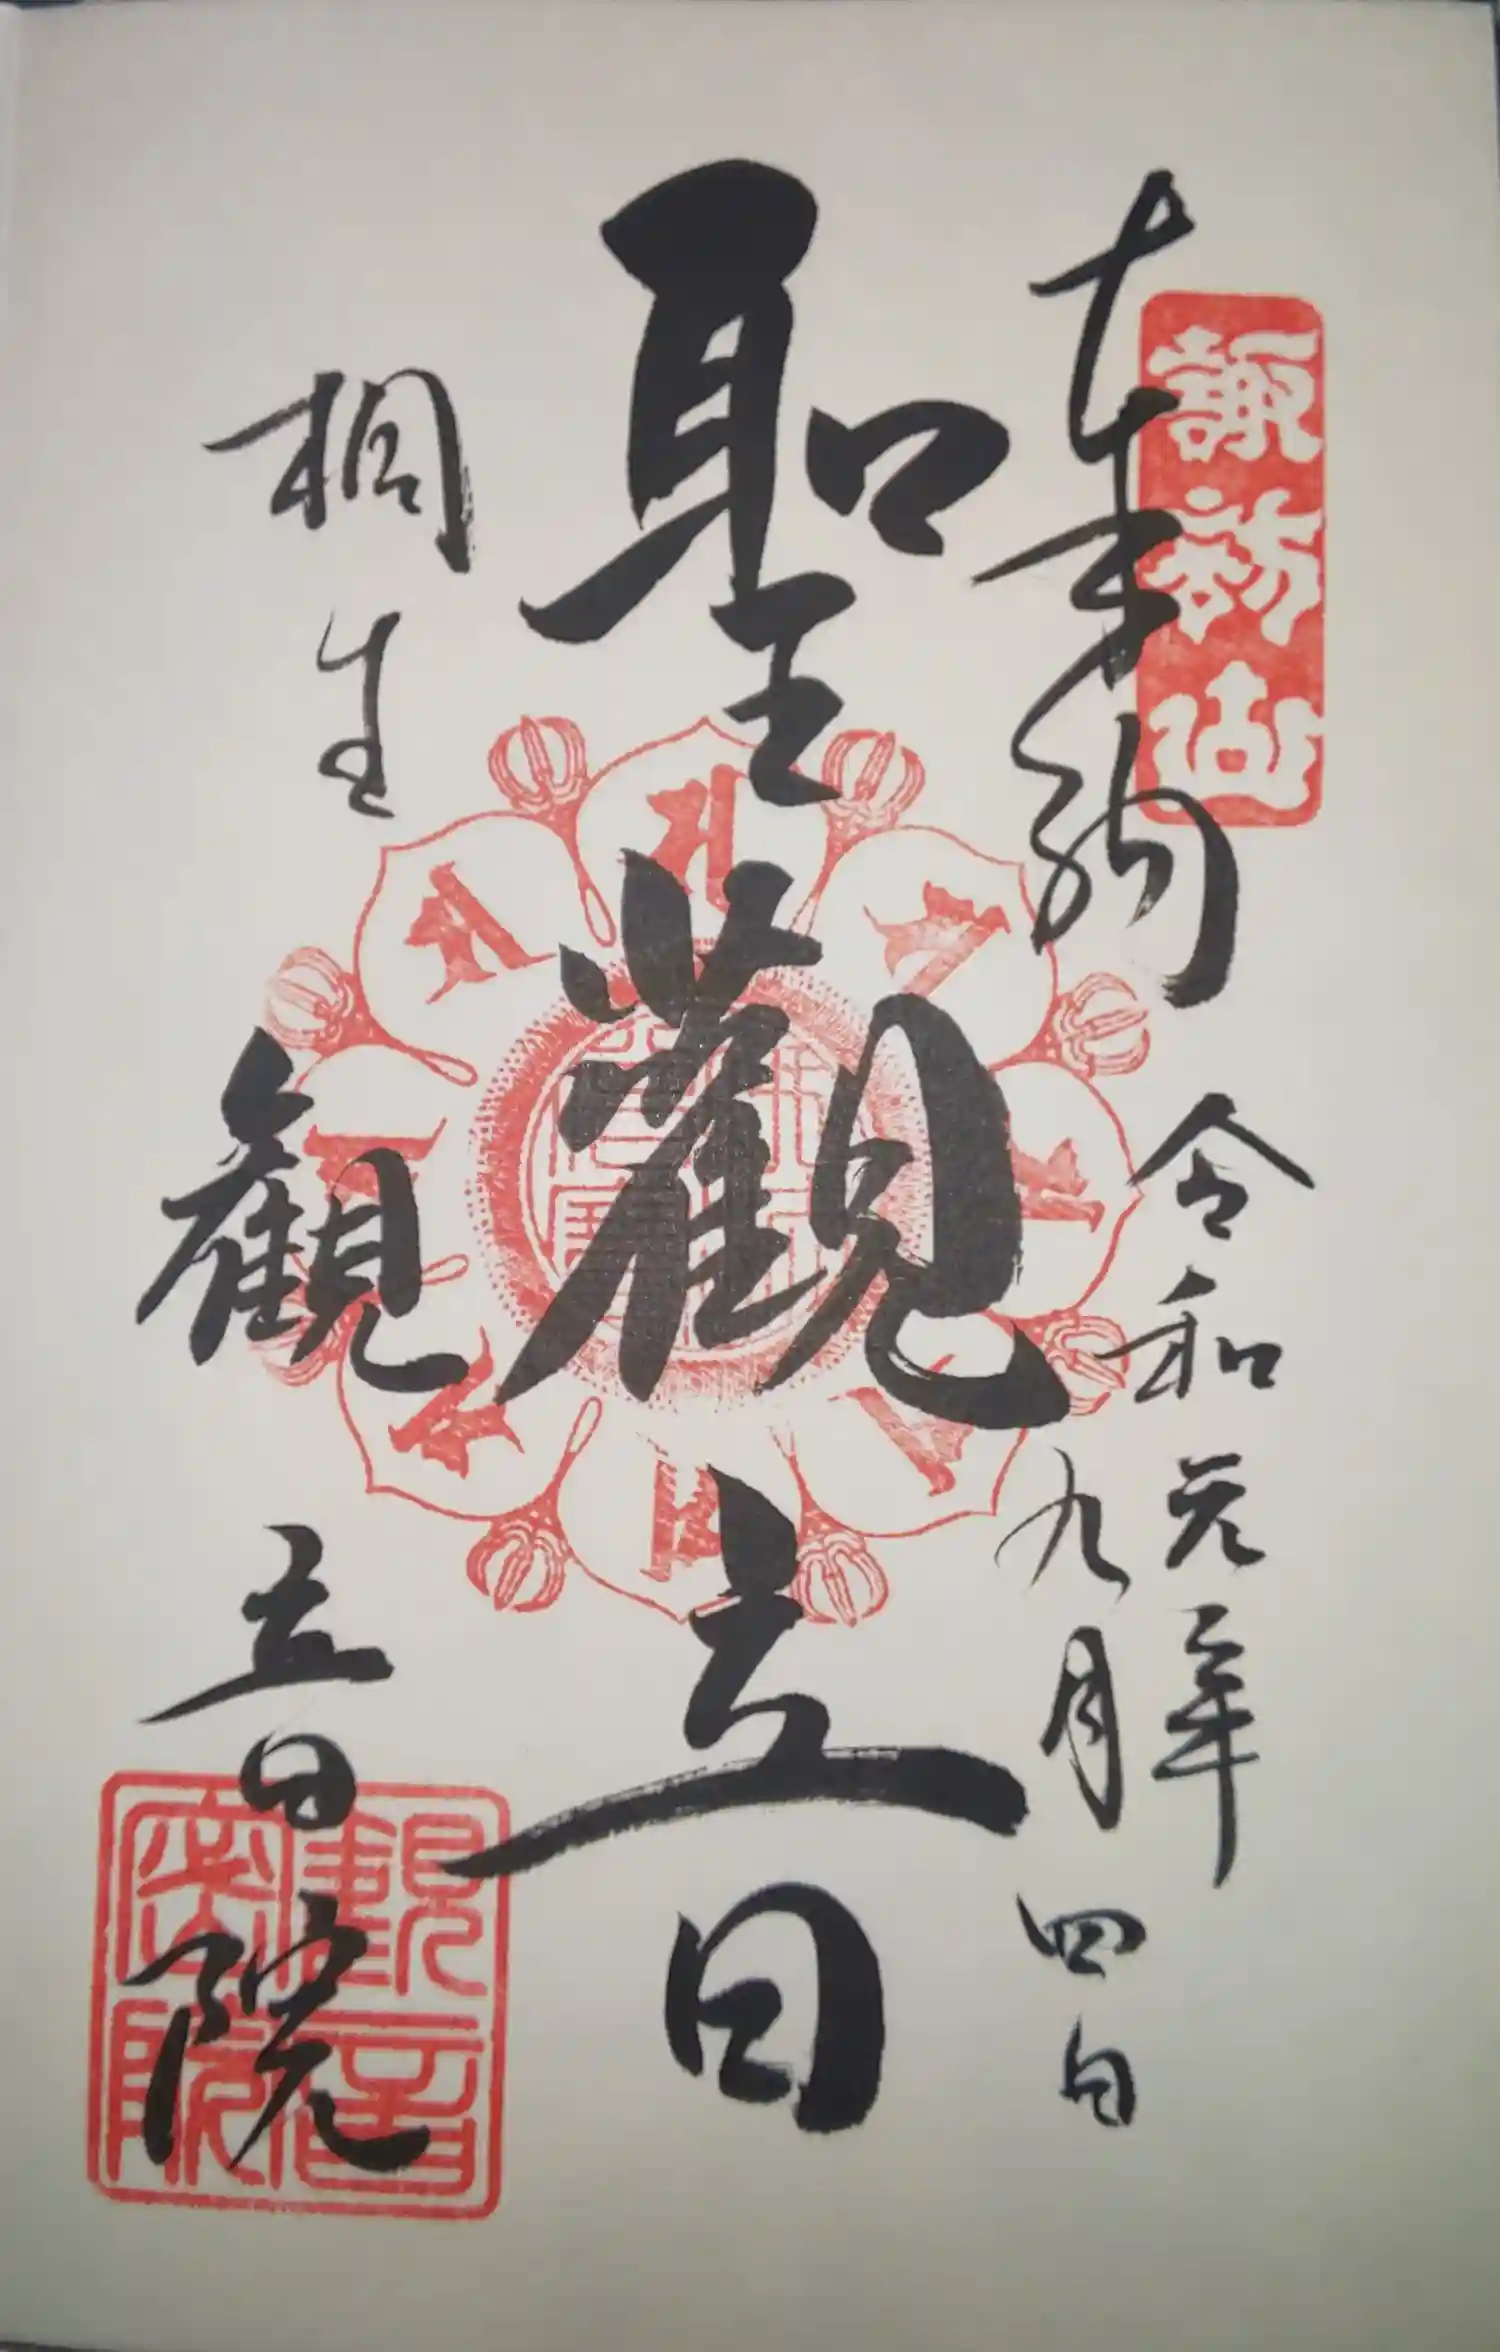 諏訪山
奉納
令和元年
九月四日
聖觀音
桐生
觀音院